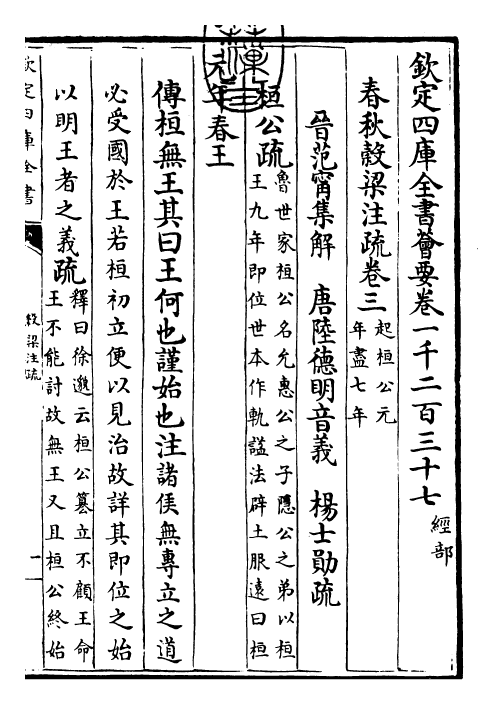 欽定四庫全書薈要卷一千二百三十七 經部
春秋穀梁注疏卷三 起桓公元
年盡七年
晉范甯集解 唐陸德明音義 楊士勛疏
桓公疏 魯世家桓公名允惠公之子隱公之弟以桓
王九年即位世本作軌諡法辟土服遠曰桓
元年春王
傳桓無王其曰王何也謹始也注諸侯無專立之道
必受國於王若桓初立便以見治故詳其即位之始
以明王者之義疏 釋曰徐邈云桓公篡立不顧王命
王不能討故無王又且桓公終始
欽定四庫全書
穀梁注疏
一